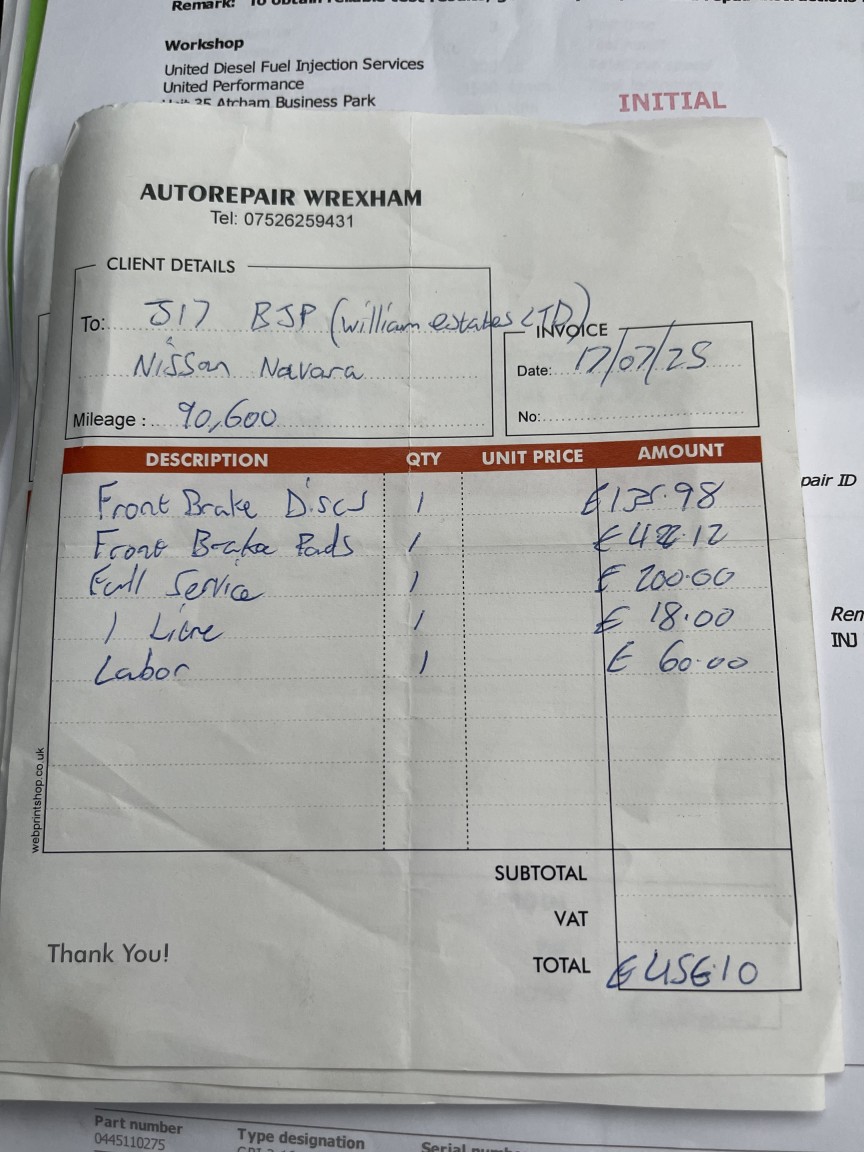 Workshop
United Diesel Fuel Injection Services
United Performance
35 Atcham Business Park
INITIAL
AUTOREPAIR WREXHAM
Tel: 07526259431
CLIENT DETAILS
To: J17 BJP (william estates LTD)
Nissan Navara
Mileage : 90,600
INVOICE
Date: 17/07/25
No:
DESCRIPTION QTY UNIT PRICE AMOUNT
Front Brake Discs 1 £135.98
Front Brake Pads 1 £42.12
Full Service 1 £ 200.00
1 Litre 1 £ 18.00
Labor 1 £ 60.00
SUBTOTAL
VAT
TOTAL £456.10
Thank You!
webprintshop.co.uk
pair ID
INJ
Part number
0445110275
Type designation